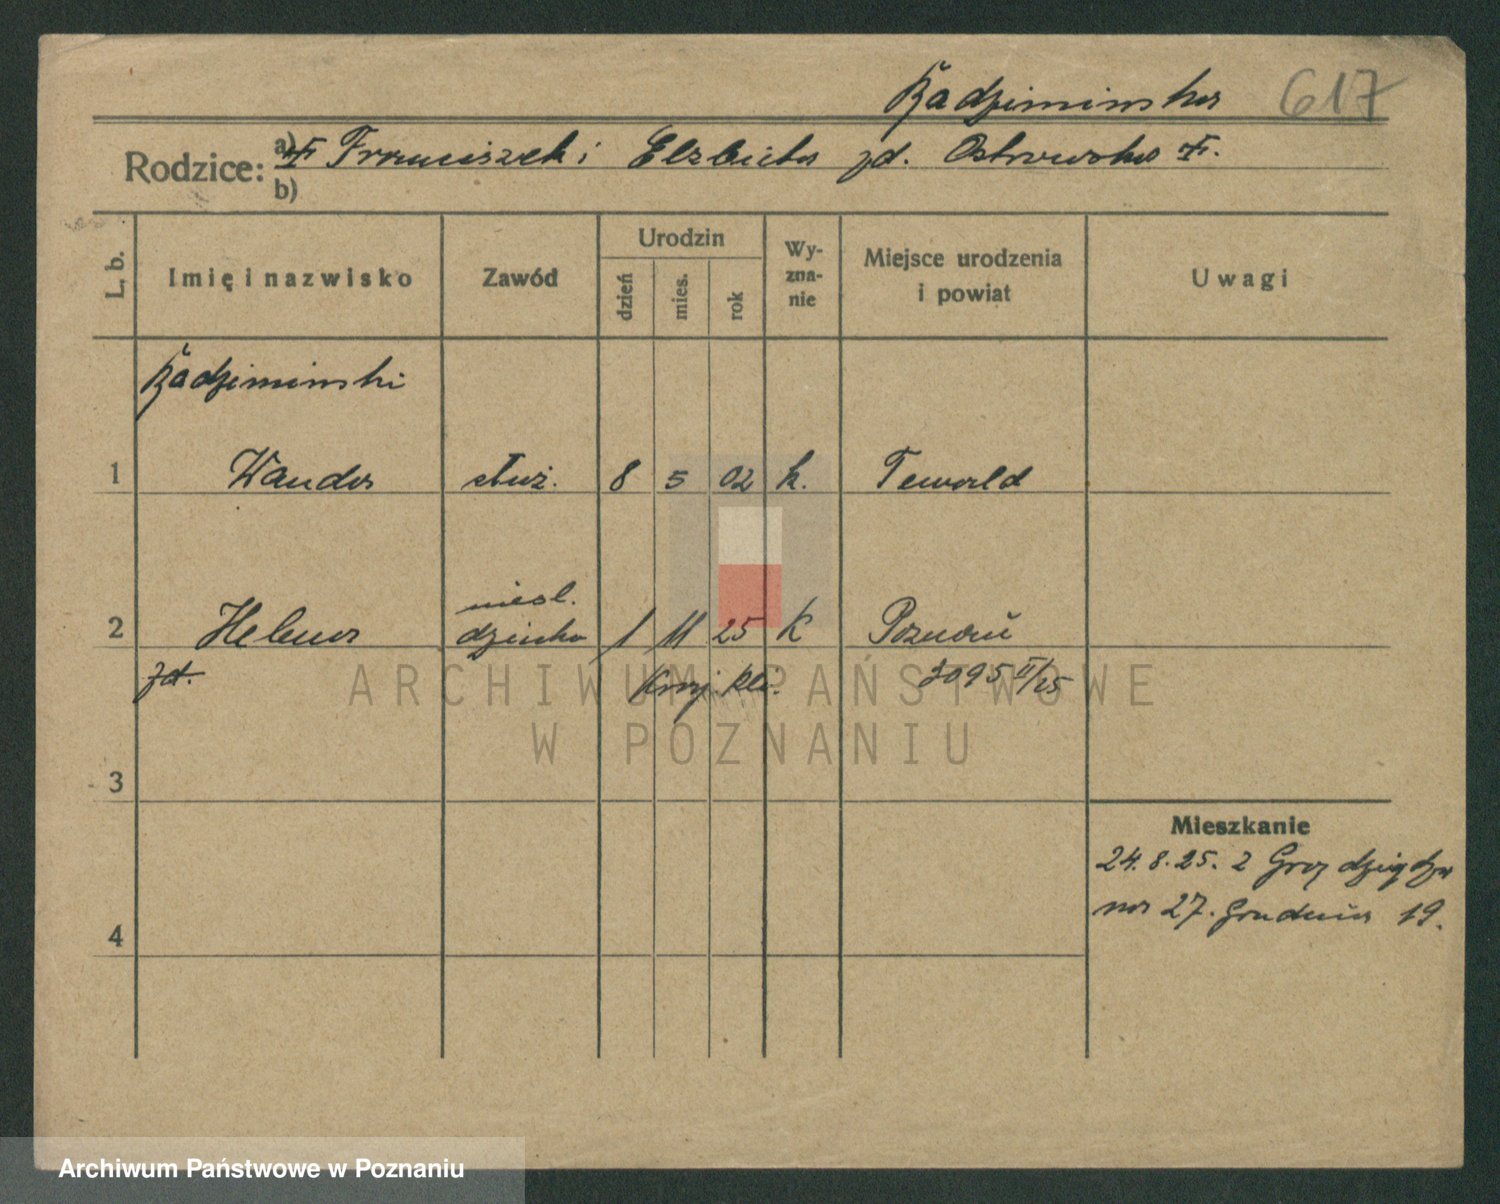 Radzimińska 617
Rodzice: a) Franciszek i Elżbieta zd. Ostrowska
b)
L. b.
Imię i nazwisko
Zawód
Urodzin
dzień
mies.
rok
Wy-
zna-
nie
Miejsce urodzenia
i powiat
Uwagi
Radzimiński
1 Wanda służ. 8 5 02 k. Tewald
niesl.
2 Helena dziecko 1 11 25 k Poznań
zd. 3095 II/25
3
Mieszkanie
24.8.25. z
na 27. Grudnia 19.
4
ARCHIWUM PAŃSTWOWE
W POZNANIU
Archiwum Państwowe w Poznaniu